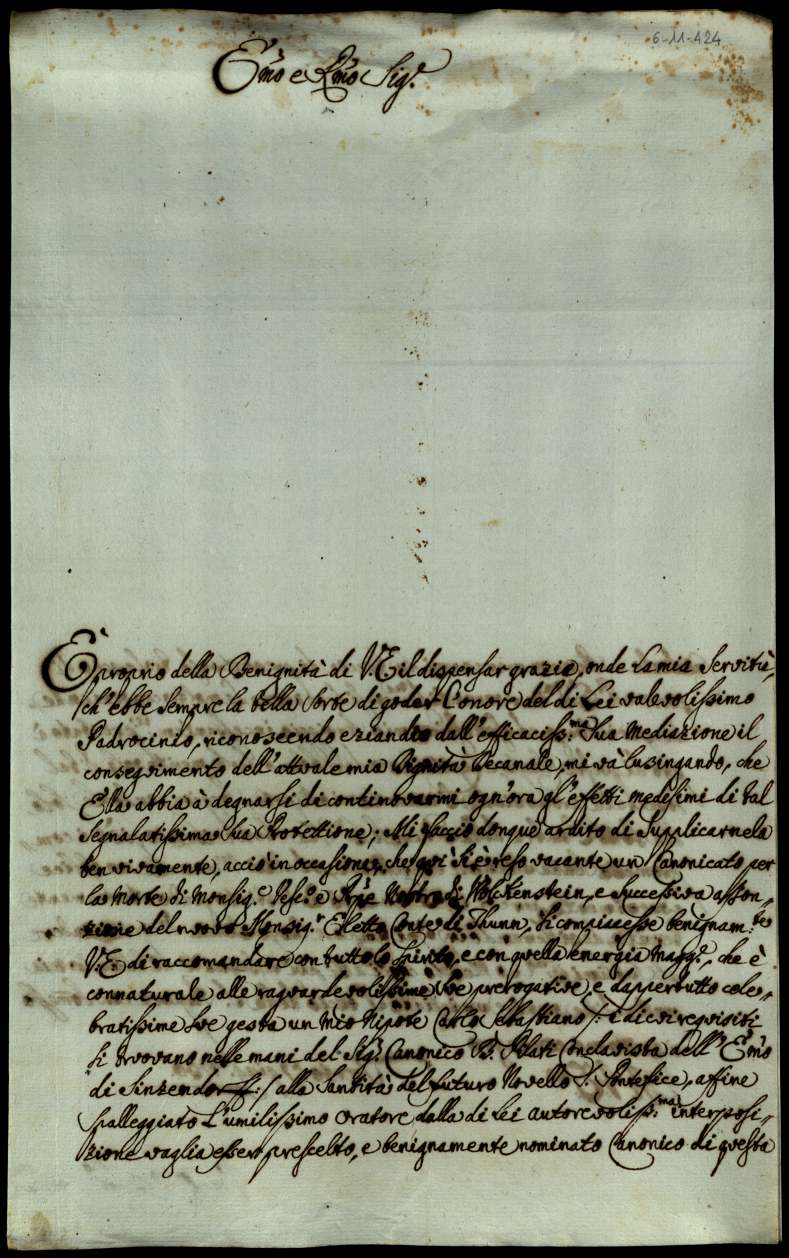 6-11-424
Em̃o e Rm̃o Sig.r
È proprio della Benignità di V.E. il dispensar grazie, onde la mia Servitù,
ch'ebbe sempre la bella sorte di goder l'onore del di Lei valevolissimo
Padrocinio, riconoscendo eziandio dall'efficaciss:ma Sua mediazione il
conseguimento dell'attuale mia Dignità Decanale, mi và lusingando, che
Ella abbia à degnarsi di continovarmi ogn'ora gl'effetti medesimi di tal
segnalatissima Sua Protettione; Mi faccio donque ardito di Supplicarnela
ben vivamente, acciò in occasione, che quì si è reso vacante un Canonicato per
la morte di Monsig.e Vesc.o e Pñpe Nostro di Wolckenstein, e successiva asson„
zione del nuovo Monsig.r Eletto Conte di Thunn, si compiacesse benignam.te
V.E. di raccomandare con tutto lo spirito, e con quella energia magg.e, che è
connaturale alle raguardevolissime Sue prerogative, e dappertutto cele„
bratissime Sue gesta un mio Nipote Carlo Sebastiano /: i di cui requisiti
si trovano nelle mani del Sig.r Canonico B. Pilati Conclavista dell' Em̃o
di Sinzendorff :/ alla Santità del futuro Novello S. Pontefice, affine
spalleggiato l'umilissimo oratore dalla di Lei autorevoliss:ma interposi„
zione vaglia esser prescelto, e benignamente nominato Canonico di questa